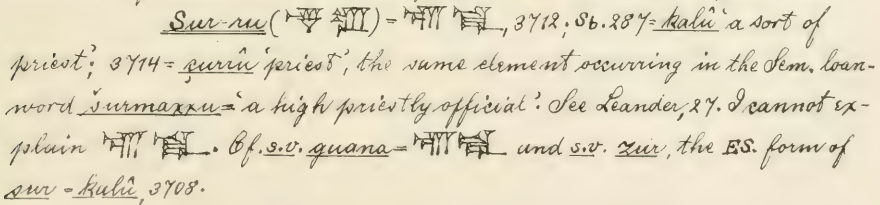 Sur-ru ( ) = , 3712; Sb. 287 = kalû 'a sort of
priest'; 3714 = ṣurrû 'priest', the same element occurring in the Sem. loan-
word šurmaxxu = 'a high priestly official'. See Leander, 27. I cannot ex-
plain . Cf. s.v. guana = and s.v. zur, the ES. form of
sur = kalû, 3708.